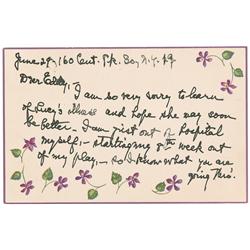 June 29, 160 Cent. Pk. So, N.Y. 19
Dear Eddy,
I am so very sorry to learn
of Lucy's illness and hope she may soon
be better – I am just out of hospital
myself, – starting my 8th week out
of my play, – so I know what you are
going thro'.